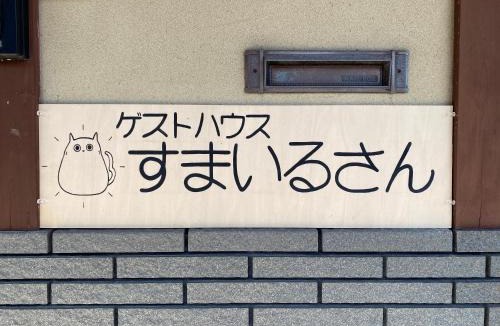 ゲストハウス
すまいるさん